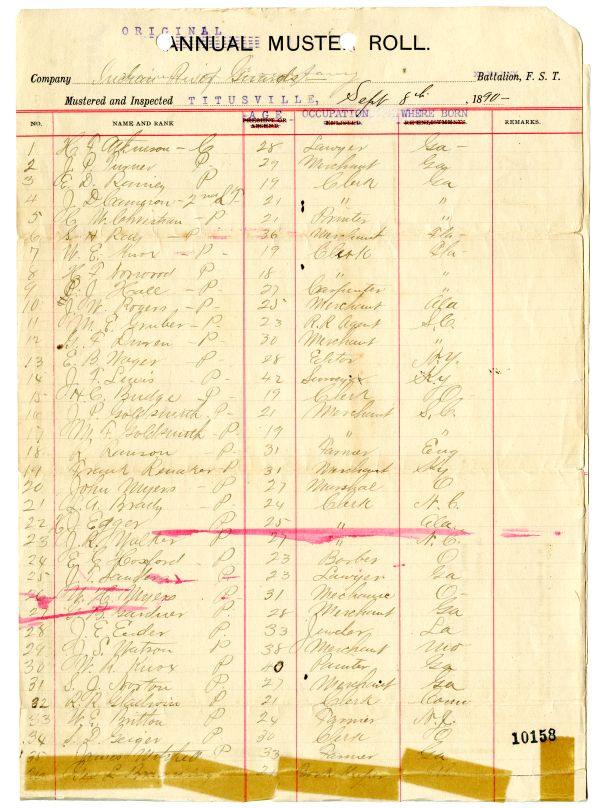 ORIGINAL
ANNUAL MUSTER ROLL.
Company Indian River Guards Battalion, F. S. T.
Mustered and Inspected TITUSVILLE, Sept 8th, 1890-
NO. NAME AND RANK AGE OCCUPATION WHERE BORN REMARKS.
1 Atkinson - C 28 Lawyer Ga -
2 J. P. Turner P. 29 Merchant Ga
3 E. D. Ranney P 19 Clerk Ga
4 J. D. Cameron - 2nd Lt 21 " "
5 C. W. Christian - P 21 Printer "
6 P 36 Merchant Fla -
7 W. E. Knox - P 19 Clerk Fla -
8 H. F. Norwood P 18 " "
9 Hall - P 27 Carpenter "
10 J. W. Rogers - P- 25 Merchant Ala
11 M. E. Gruber - P 23 R.R. Agent S.C.
12 P- 30 Merchant "
13 E. B. Wager - P 28 Editor N.Y.
14 J. F. Lewis - P 42 Ky
15 H. C. Budge P- 19 Clerk O-
16 J. P. Goldsmith - P- 21 Merchant S.C.
17 M. F. Goldsmith - P 19 " "
18 Lawson - P 31 Farmer Eng
19 Frank - P 31 Merchant Ky
20 John Myers - P 27 Marshal O
21 J. A. Brady - P 24 Clerk N.C.
22 Egger P 25 " Ala
23 J. R. Walker P 27 " N.C.
24 E. C. Hoxford P 23 Barber O
25 P 23 Lawyer Ga
26 W. H. Myers P- 31 Mechanic O-
27 Gardner P 28 Merchant Ga
28 J. E. P 33 Jeweler La
29 J. S. Watson P 38 Merchant Mo
30 W. R. Knox P 40 Painter Ga
31 S. J. Norton P 27 Merchant Ga
32 R. R. Gladwin P 21 Clerk Conn
33 W. E. Britton P 24 Farmer N.J.
34 S. P. Geiger P- 30 Clerk O
35 James Mitchell P 33 Farmer Ga
10158